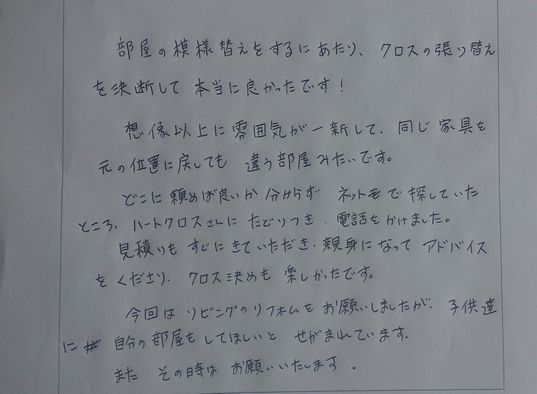 部屋の模様替えをするにあたり、クロスの張り替え
を決断して本当に良かったです!
想像以上に雰囲気が一新して、同じ家具を
元の位置に戻しても 違う部屋みたいです。
どこに頼めば良いか分からず ネット等で探していた
ところ、ハートクロスさんに たどりつき、電話をかけました。
見積りもすぐにきていただき、親身になって アドバイス
をくださり、クロス決めも 楽しかったです。
今回は リビングのリフォームをお願いしましたが、子供達
に 自分の部屋もしてほしいと せがまれています。
また その時は お願いいたします。